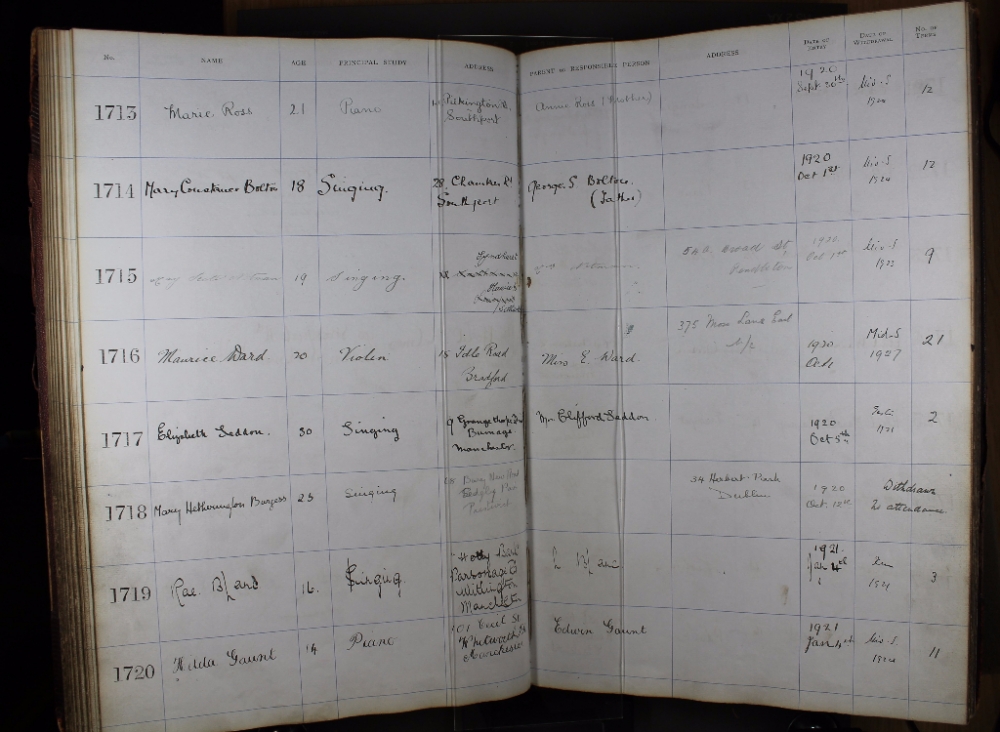 No.
NAME
AGE
PRINCIPAL STUDY
ADDRESS
PARENT OR RESPONSIBLE PERSON
ADDRESS
DATE OF ENTRY
DATE OF WITHDRAWAL
NO. OF TERMS
1713
Marie Ross
21
Piano
Southport
Annie Ross (Mother)
1920
Sept 30th
Mid-S
1924
12
1714
Mary Constance Bolton
18
Singing.
28, Chambers Rd
Southport
George S Bolton.
(Father)
1920
Oct 1st
Mid-S
1924
12
1715
19
Singing.
54A Broad St
Pendleton
1920
Oct 1st
Mid-S
1923
9
1716
Maurice Ward
20
Violin
15 Idle Road
Bradford
Miss E. Ward.
375 Moss Lane East
1920
Oct
Mid-S
1927
21
1717
Elizabeth Seddon.
30
Singing
9 Grangethorpe Dr
Burnage
Manchester.
Mr Clifford Seddon
1920
Oct 5th
1921
2
1718
Mary Hetherington Burgess
25
Singing
Sedgley Park
Prestwich
34 Park
Dublin
1920
Oct. 12th
Withdrawn
No attendance.
1719
Rae. Bland
16.
Singing
Parsonage Rd
Withington
Manchester
L Bland
1921.
Jan 4th
1921
3
1720
Hilda Gaunt
14
Piano
101 Cecil St
Whitworth St
Manchester
Edwin Gaunt
1921
Jan 4th
Mid-S.
1924
11